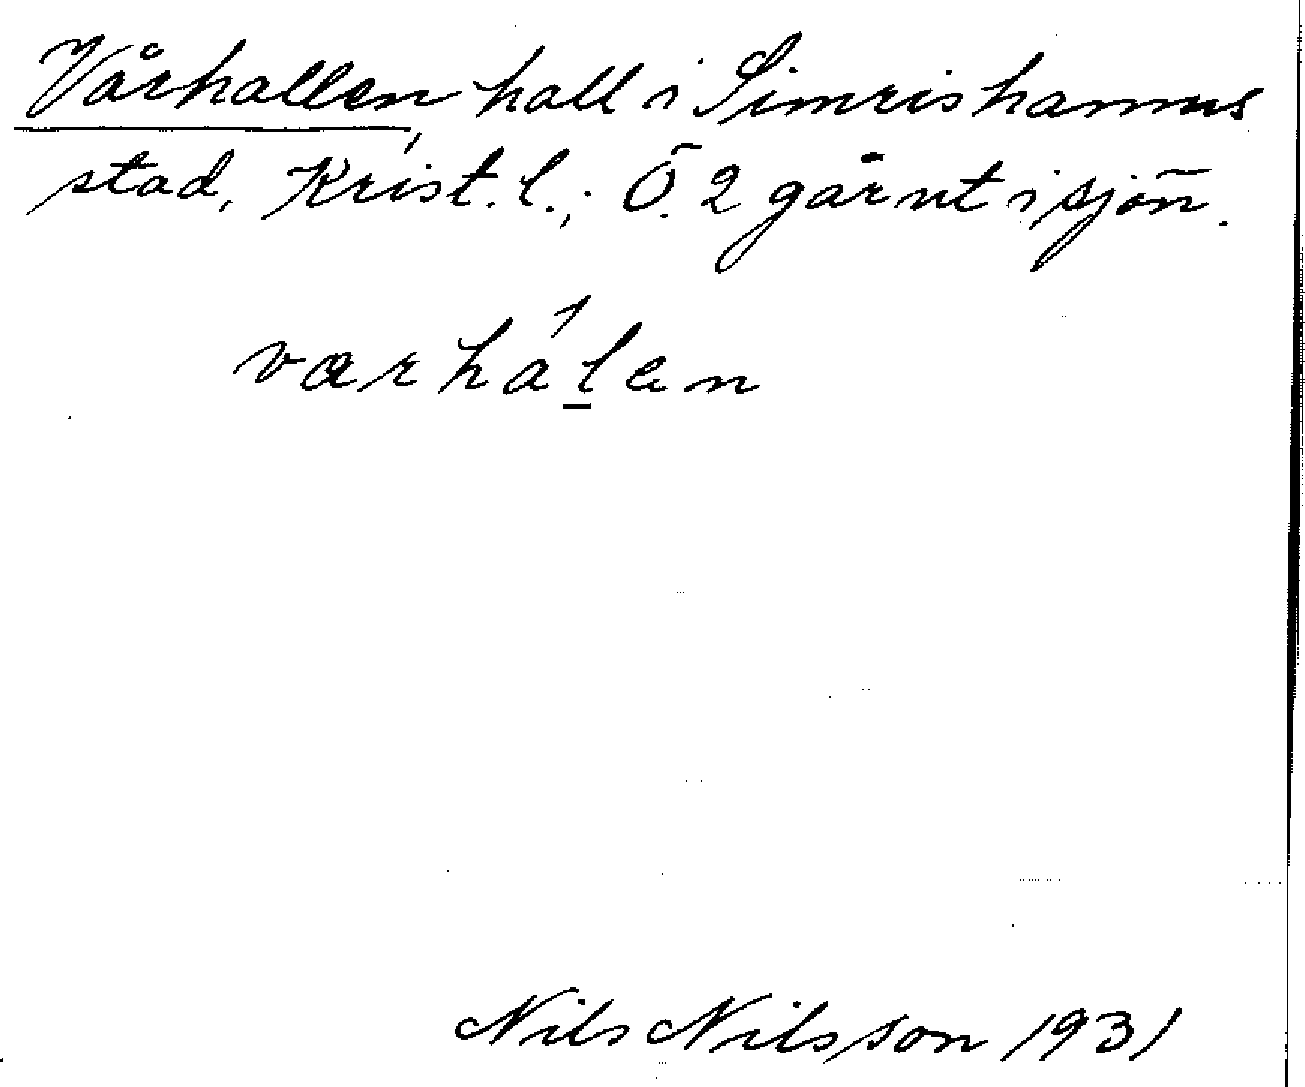 Vårhallen, hall i Simrishamns
stad, Krist. l.; Ö. 2 går nt i sjön.
varhálen
Nils Nilsson 1931